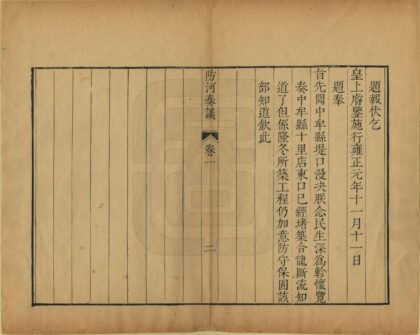 題報伏乞
皇上睿鑒施行雍正元年十一月十一日
題奉
旨先聞中牟縣堤口漫决朕念民生深爲軫懷覽
奏中牟縣十里店東口已經堵築合龍斷流知
道了但係隆冬所築工程仍加意防守保固該
部知道欽此
防河奏議
卷一
二